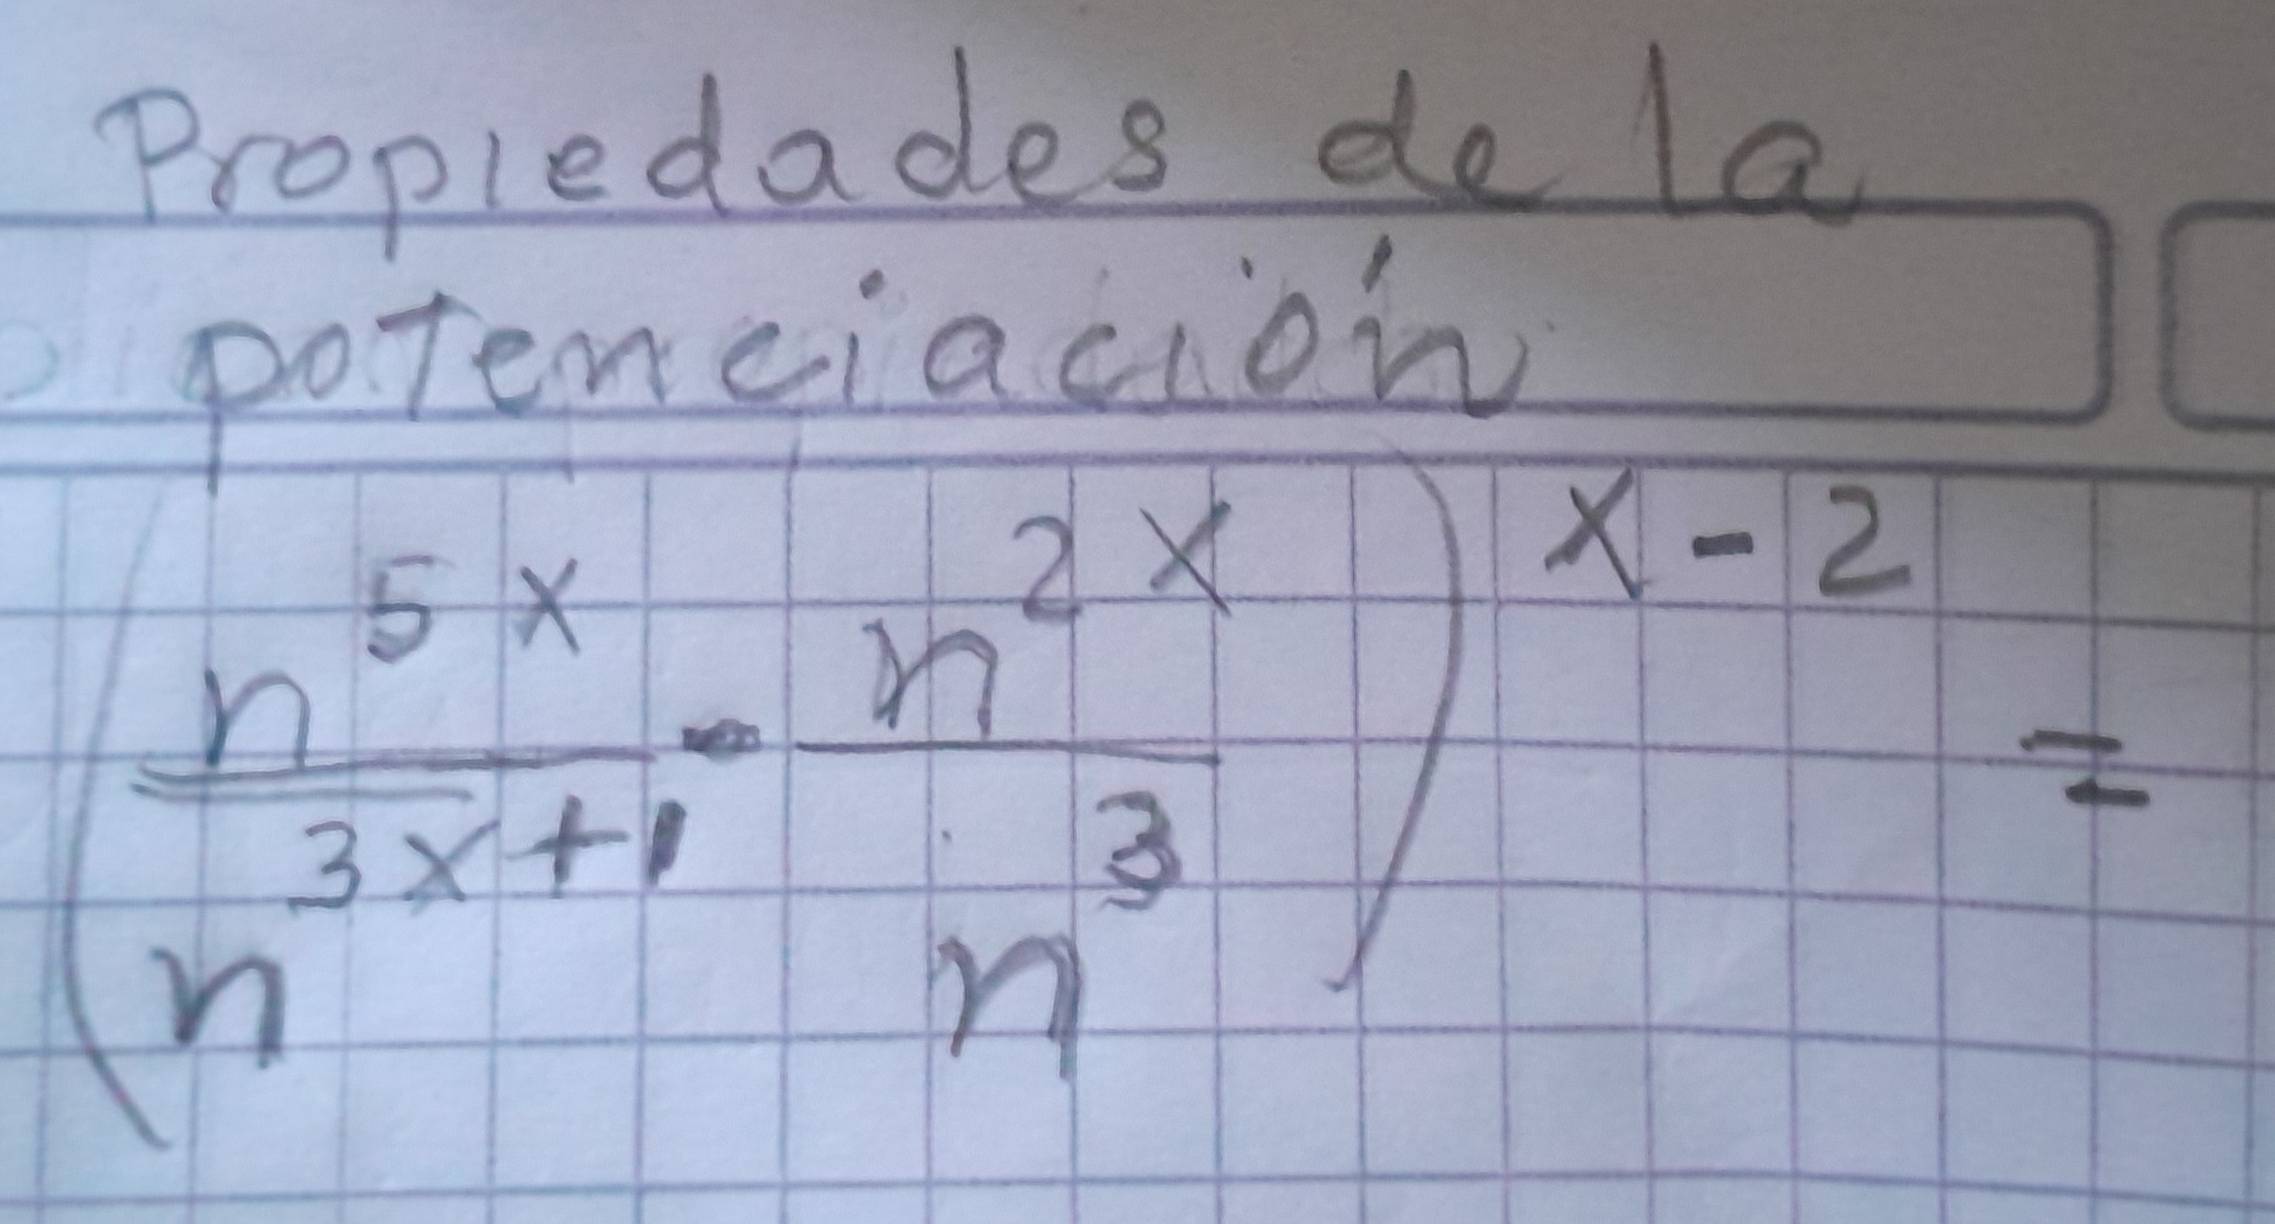 Propiedades de la
potenciación
(n^5x / n^3x+1 - n^2x / n^3)^x-2 =